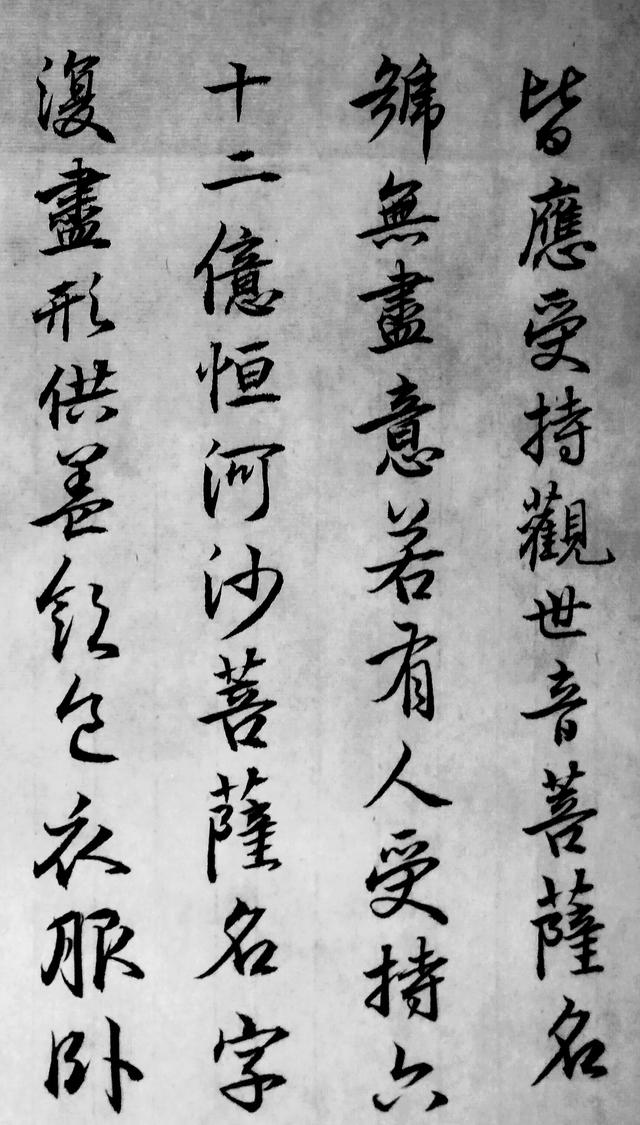 皆應受持觀世音菩薩名
號無盡意若有人受持六
十二億恒河沙菩薩名字
復盡形供養飲食衣服臥